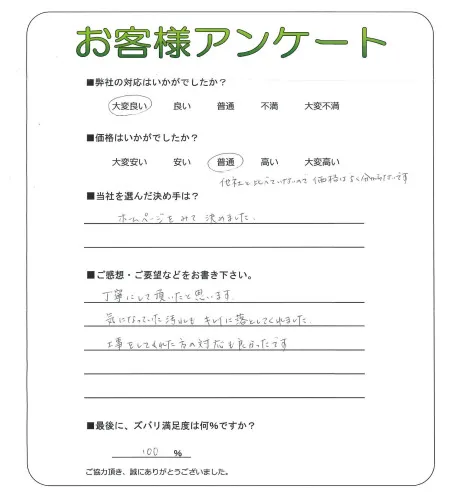 お客様アンケート
■弊社の対応はいかがでしたか？
大変良い 良い 普通 不満 大変不満
■価格はいかがでしたか？
大変安い 安い 普通 高い 大変高い
他社と比べていないので価格はよく分からないです
■当社を選んだ決め手は？
ホームページをみて決めました.
■ご感想・ご要望などをお書き下さい。
丁寧にして頂いたと思います.
気になっていた汚れも キレイに落としてくれました.
工事をしてくれた方の対応も良かったです
■最後に、ズバリ満足度は何%ですか？
100 %
ご協力頂き、誠にありがとうございました。